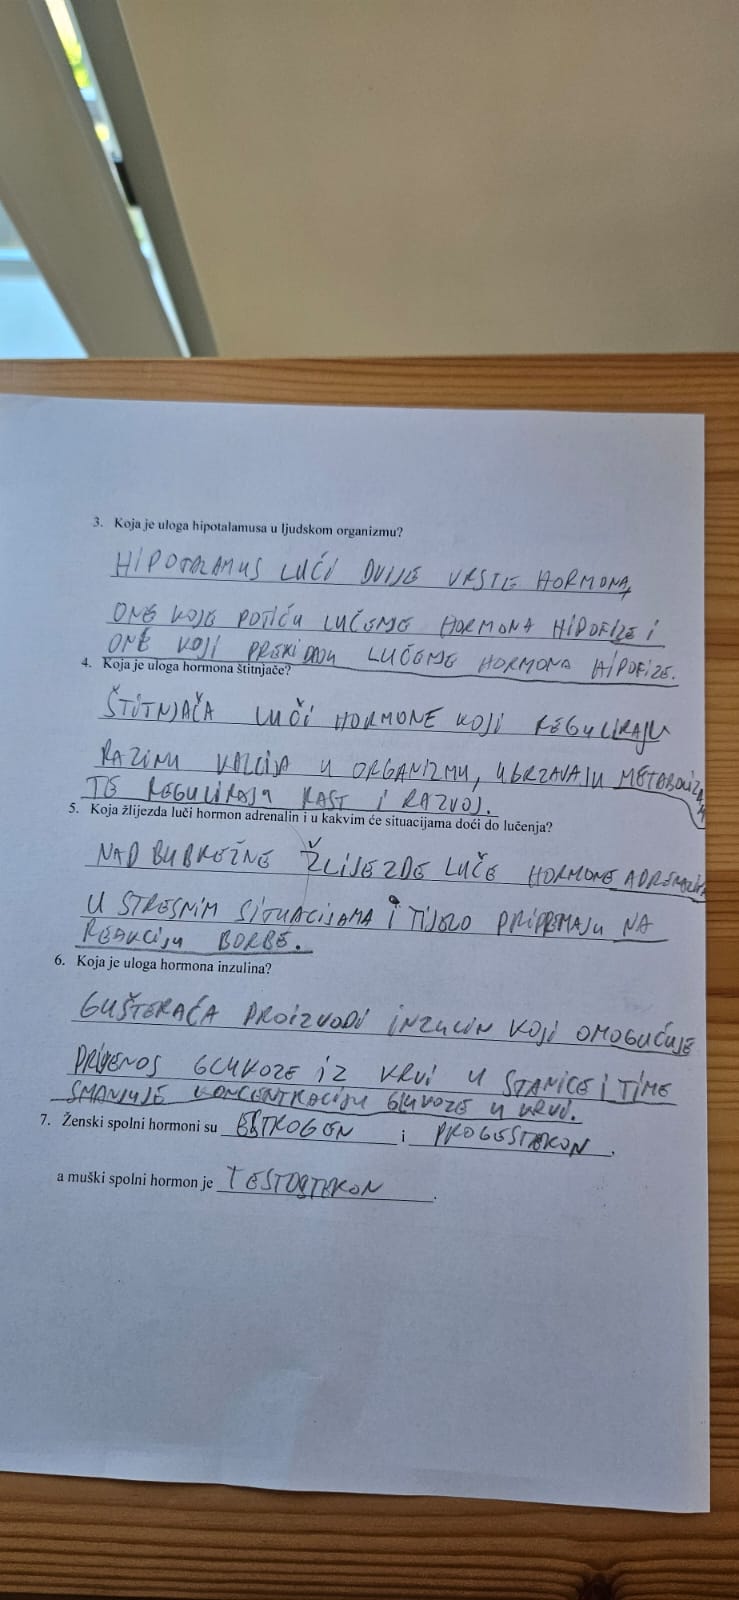 3. Koja je uloga hipotalamusa u ljudskom organizmu?
HIPOTALAMUS LUČI DVIJE VRSTE HORMONA,
ONE KOJE POTIČU LUČENJE HORMONA HIPOFIZE I
ONE KOJI PREKIDAJU LUČENJE HORMONA HIPOFIZE.
4. Koja je uloga hormona štitnjače?
ŠTITNJAČA LUČI HORMONE KOJI REGULIRAJU
RAZINU KALCIJA U ORGANIZMU, UBRZAVAJU METABOLIZAM
TE REGULIRAJU RAST I RAZVOJ.
5. Koja žlijezda luči hormon adrenalin i u kakvim će situacijama doći do lučenja?
NADBUBREŽNE ŽLIJEZDE LUČE HORMONE ADRENALIN
U STRESNIM SITUACIJAMA I TIJELO PRIPREMAJU NA
REAKCIJU BORBE.
6. Koja je uloga hormona inzulina?
GUŠTERAČA PROIZVODI INZULIN KOJI OMOGUĆUJE
PRIJENOS GLUKOZE IZ KRVI U STANICE I TIME
SMANJUJE KONCENTRACIJU GLUKOZE U KRVI.
7. Ženski spolni hormoni su ESTROGEN i PROGESTERON.
a muški spolni hormon je TESTOSTERON.